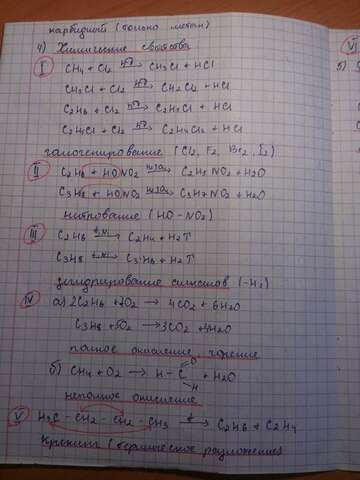 карбидной (только метан)
4) Химические свойства
I CH4 + Cl2 hν→ CH3Cl + HCl
CH3Cl + Cl2 hν→ CH2Cl2 + HCl
C2H6 + Cl2 hν→ C2H5Cl + HCl
C2H5Cl + Cl2 hν→ C2H4Cl2 + HCl
галогенирование (Cl2, F2, Br2, I2)
II C2H6 + HONO2 → C2H5NO2 + H2O
C3H8 + HONO2 → C3H7NO2 + H2O
нитрование (HO-NO2)
III C2H6 t,Ni→ C2H4 + H2↑
C3H8 t,Ni→ C3H6 + H2↑
дегидрирование (-H2)
IV а) 2C2H6 + 7O2 → 4CO2 + 6H2O
C3H8 + 5O2 → 3CO2 + 4H2O
полное окисление, горение
б) CH4 + O2 → H - C =O H + H2O
неполное окисление
V H3C - CH2 - CH2 - CH3 t→ C2H6 + C2H4
Крекинг (термическое разложение)
VI
5)